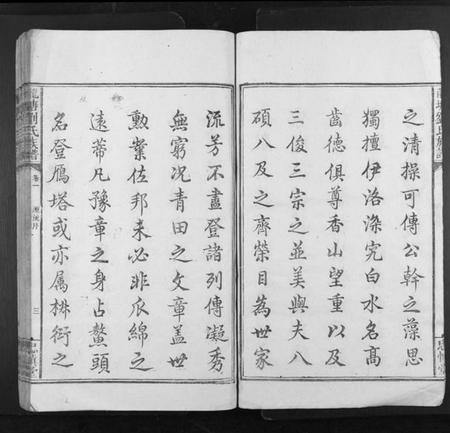 之清操可傳公幹之藻思
獨擅伊洛深究白水名高
齒德俱尊香山望重以及
三俊三宗之並美與夫八
碩八及之齊榮目為世家
流芳不盡登諸列傳凝秀
無窮況青田之文章蓋世
勳業佐邦未必非瓜綿之
遠蒂凡豫章之身占鰲頭
名登鴈塔或亦属椒衍之
龍塘劉氏族譜
卷一
三